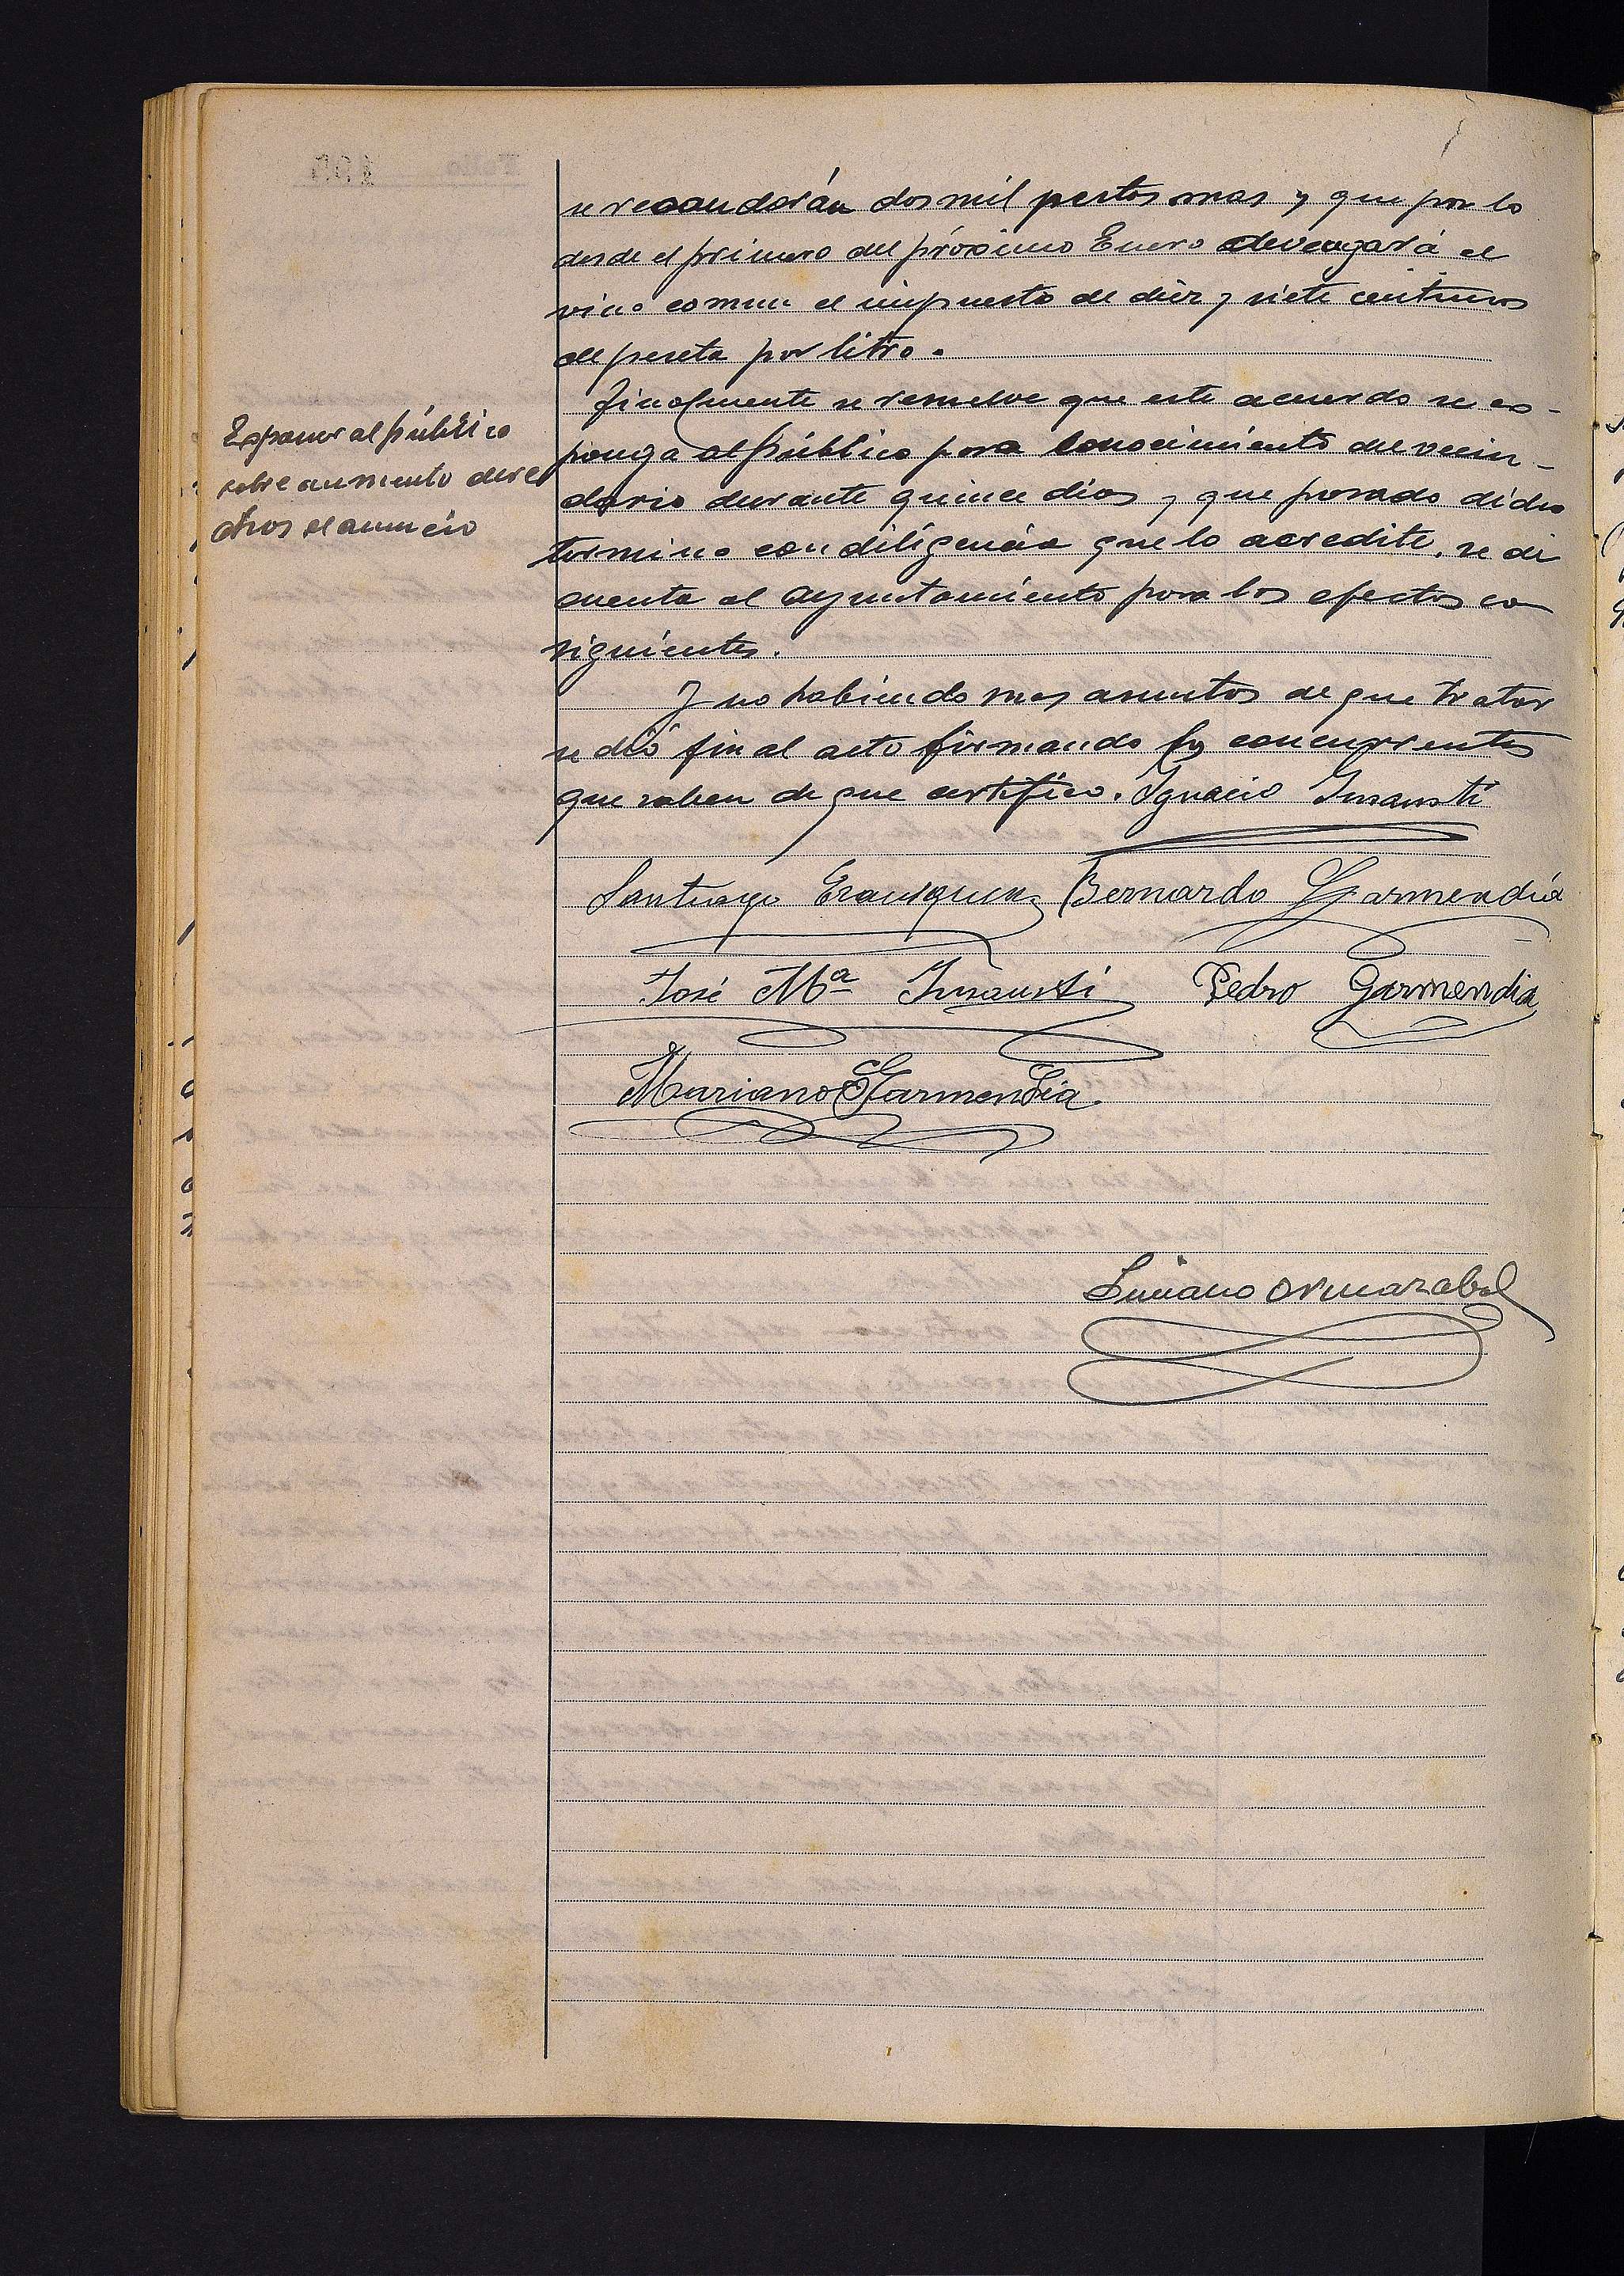 se recaudarán dos mil pestas mas y que por lo
desde el primero del próximo Enero devengará el
vino comun el impuesto de diez y siete céntimos
de peseta por litro.
Finalmente se resuelve que este acuerdo se es-
ponga al público para conocimiento del vecin-
dario durante quince dias y que pasado dicho
termino con diligencia que lo acredite, se dé
cuenta al ayuntamiento para los efectos con
siguientes.
Y no habiendo mas asuntos de que tratar
se dió fin al acto firmando los concurrentes
que saben de que certifico. Ignacio Insausti
Esponer al público
sobre aumento dere
chos el anuncio
Santiago Erausquin Bernardo Garmendia
José Mª Insausti Pedro Garmendia
Mariano Garmendia
Ormazabal